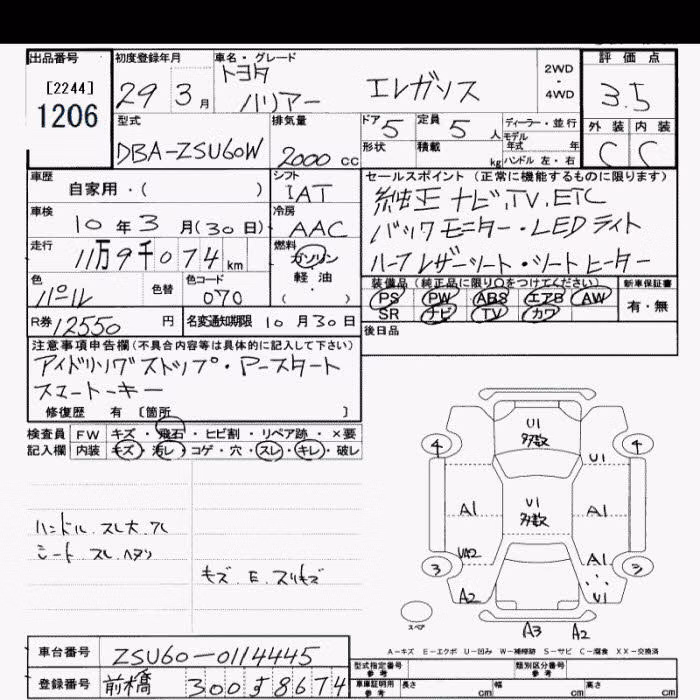 出品番号
[2244]
1206
初度登録年月
29 3 月
車名・グレード
トヨタ
ハリアー エレガンス
2WD
・
4WD
評価点
3.5
外装 内装
C C
型式
DBA-ZSU60W
排気量
2000 cc
ドア 5
定員 5 人
ディーラー・並行
モデル
年式 年
形状
積載 kg
ハンドル 左・右
車歴
自家用・( )
シフト
IAT
車検
10 年 3 月(30日)
冷房
AAC
走行
11万9千074 km
燃料
ガソリン
軽油
( )
色
パール
色替
色コード
070
R券 12550 円
名変通知期限 10月30日
セールスポイント (正常に機能するものに限ります)
純正ナビ.TV.ETC
バックモニター・LEDライト
ハーフレザーシート・シートヒーター
装備品 (純正品に限り○をつけてください)
新車保証書
PS PW ABS エアB AW
SR ナビ TV カワ
有・無
後日品
注意事項申告欄(不具合内容等は具体的に記入して下さい)
アイドリングストップ・アースタート
スマートーキー
修復歴 有 [箇所 ]
検査員 FW キズ・飛石・ヒビ割・リペア跡・×要
記入欄 内装 キズ・汚レ・コゲ・穴・スレ・キレ・破レ
ハンドル.スレ大.
シート スレ
キズ.E.スリキズ
U1
多数
4 4
U1
A1
U1
多数
A1
A1
3
A2
U1
A3 A2
スペア
A-キズ E-エクボ U-凹み W-補修跡 S-サビ C-腐食 XX-交換済
車台番号 ZSU60-0114445
登録番号 前橋 300 す 8674
型式指定番号
参考
類別区分番号
参考
車庫証明用
参考
長さ cm 幅 cm 高さ cm